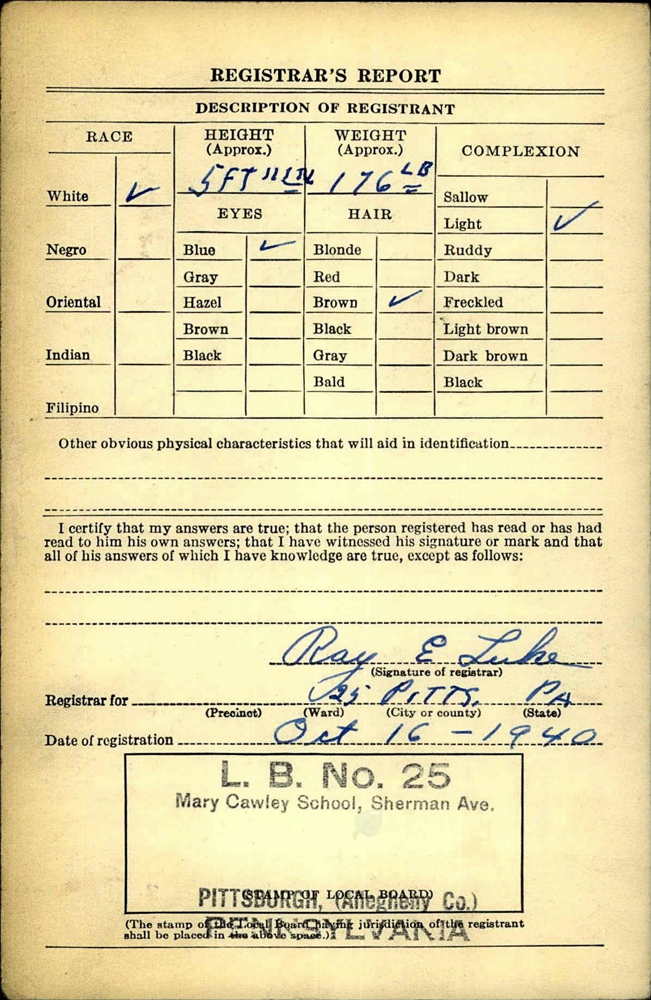 REGISTRAR'S REPORT
DESCRIPTION OF REGISTRANT
RACE
HEIGHT
(Approx.)
WEIGHT
(Approx.)
COMPLEXION
5 FT 11 IN
176 LB
White ✓
Sallow
EYES
HAIR
Light ✓
Negro
Blue ✓
Blonde
Ruddy
Gray
Red
Dark
Oriental
Hazel
Brown ✓
Freckled
Brown
Black
Light brown
Indian
Black
Gray
Dark brown
Bald
Black
Filipino
Other obvious physical characteristics that will aid in identification
I certify that my answers are true; that the person registered has read or has had
read to him his own answers; that I have witnessed his signature or mark and that
all of his answers of which I have knowledge are true, except as follows:
Ray E Luke
(Signature of registrar)
Registrar for 25 PITTS. PA
(Precinct) (Ward) (City or county) (State)
Date of registration Oct 16 - 1940
L. B. No. 25
Mary Cawley School, Sherman Ave.
(STAMP OF LOCAL BOARD)
PITTSBURGH, (Allegheny Co.)
PENNSYLVANIA
(The stamp of the Local Board having jurisdiction of the registrant
shall be placed in the above space.)